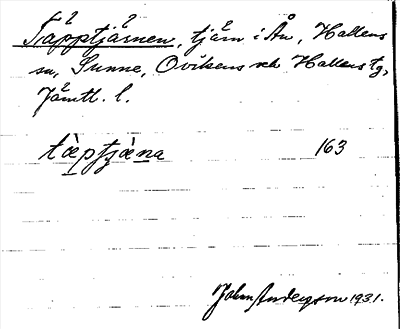 Täpptjärnen, tjärn i Ån, Hallens
sn, Sunne, Ovikens och Hallens tg,
Jämtl. l.
tæ̀ptjæ̀na 163
John Andersson 1931.